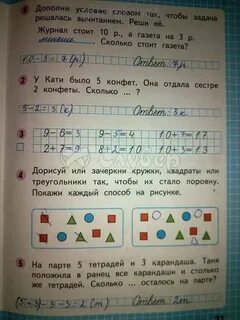 1 Дополни условие словом так, чтобы задача
решалась вычитанием. Реши её.
Журнал стоит 10 р., а газета на 3 р.
меньше. Сколько стоит газета?
10-3=7(р) Ответ 7р
2 У Кати было 5 конфет. Она отдала сестре
2 конфеты. Сколько ... ?
5-2=3(к) Ответ: 3к
3 9-6=3 9-5=4 10+7=17
2+7=9 8+2=10 10+3=13
4 Дорисуй или зачеркни кружки, квадраты или
треугольники так, чтобы их стало поровну.
Покажи каждый способ на рисунке.
5 На парте 5 тетрадей и 3 карандаша. Таня
положила в ранец все карандаши и столько
же тетрадей. Сколько ... осталось на парте?
(5+3)-3-3=2(т) Ответ 2т